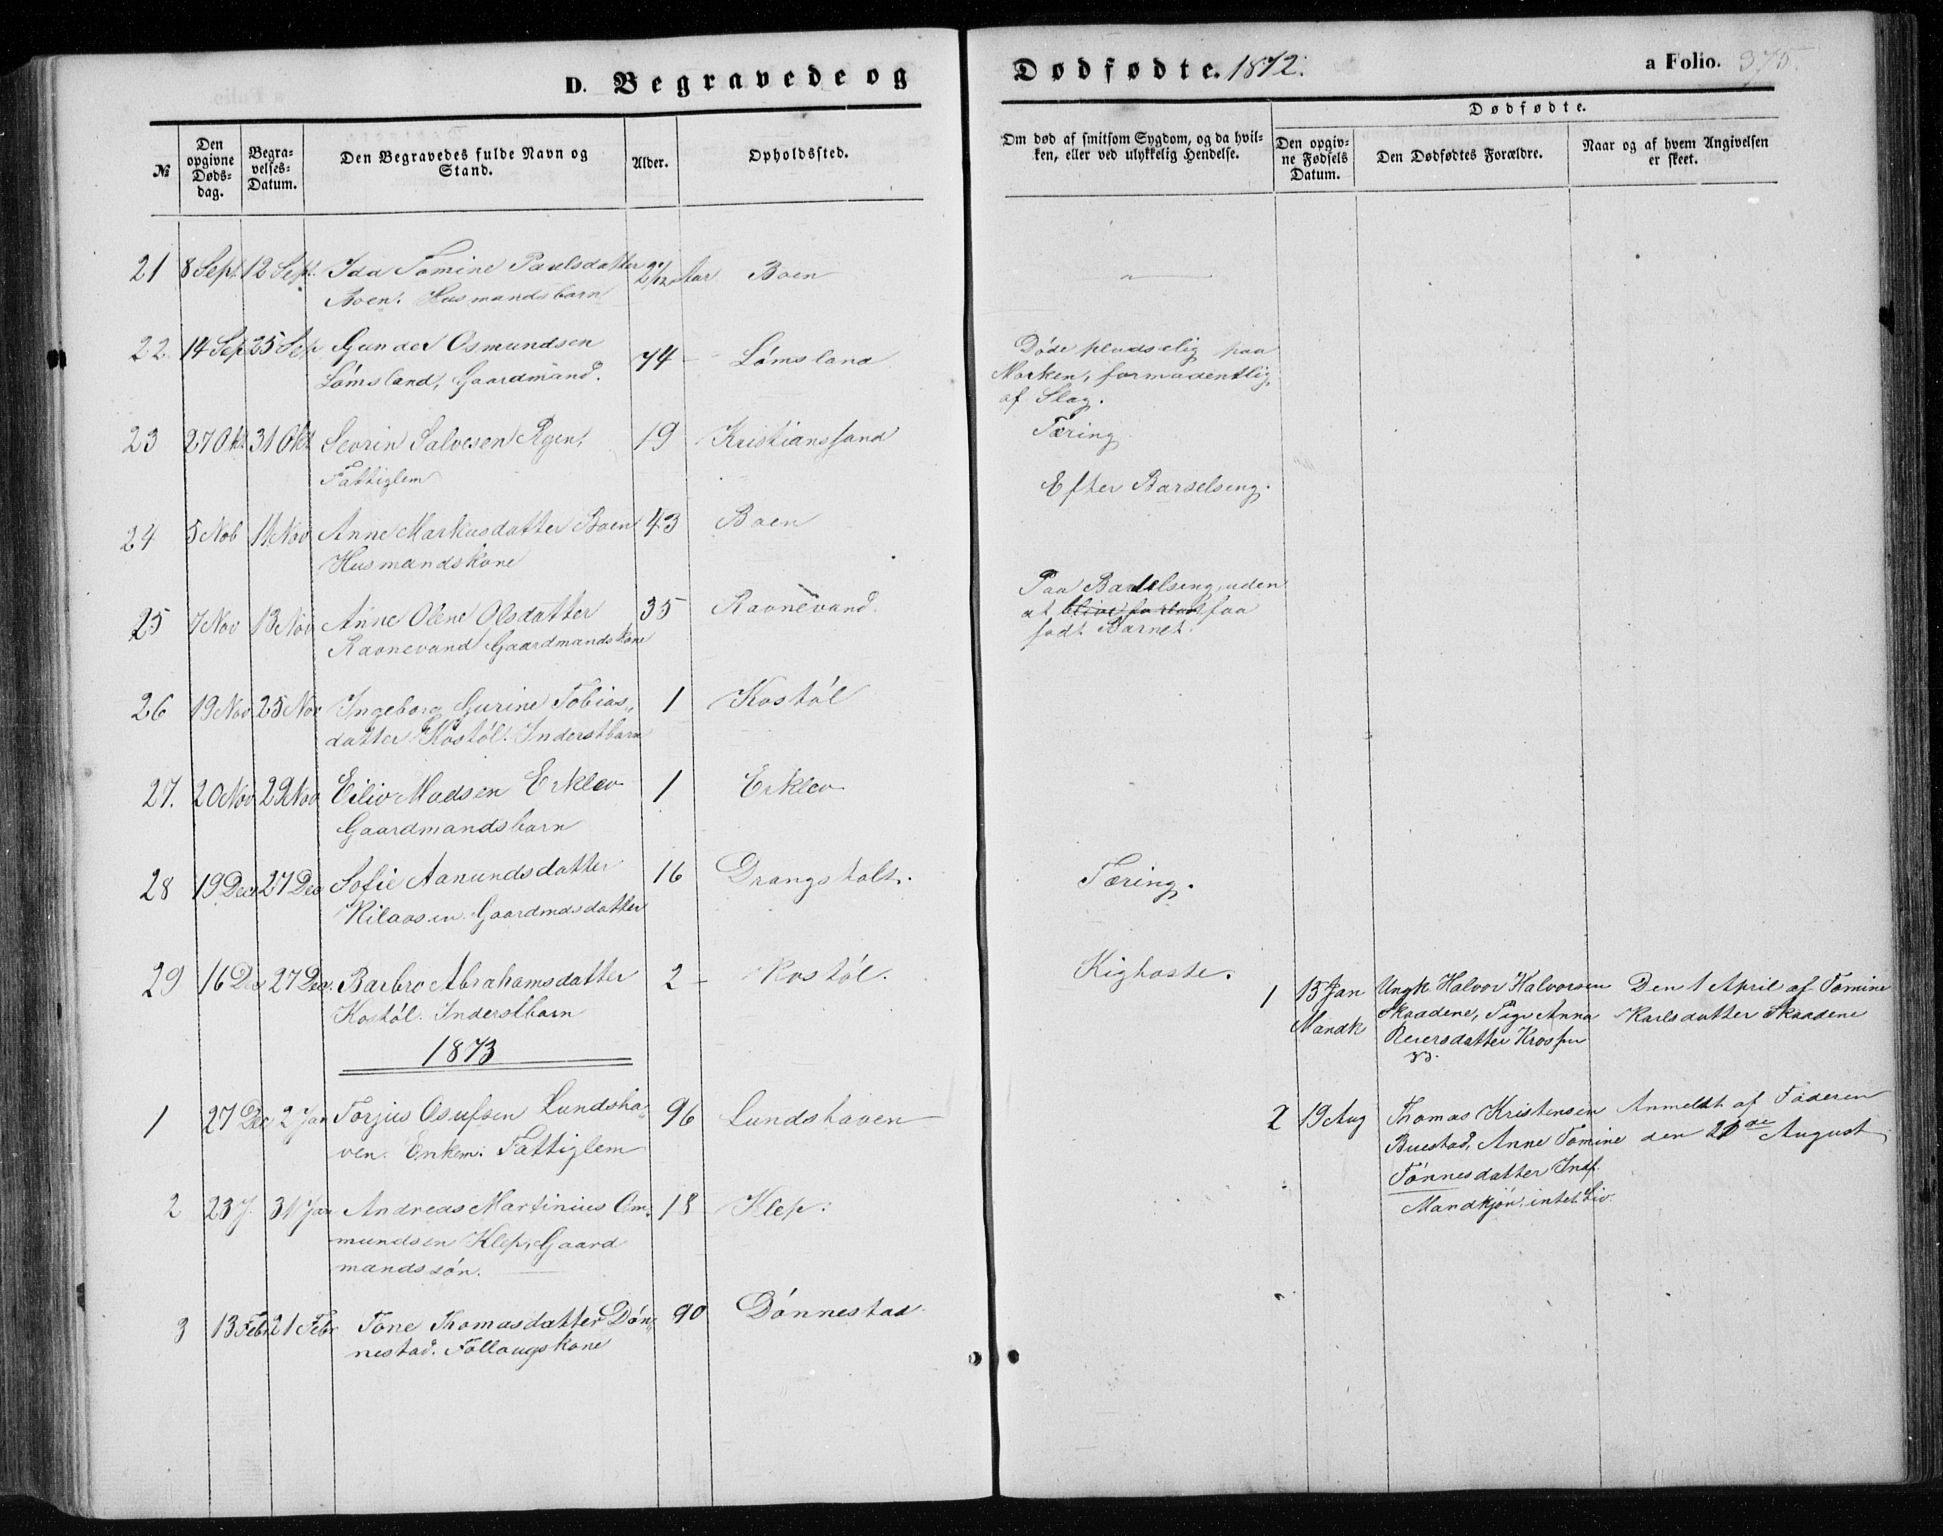 D. Begravede og
Dødfødte. 1872.
a Folio. 375.
№
Den opgivne Døds-dag.
Begra-velses-Datum.
Den Begravedes fulde Navn og Stand.
Alder.
Opholdssted.
Om død af smitsom Sygdom, og da hvil-
ken, eller ved ulykkelig Hendelse.
Dødfødte.
Den opgiv-ne Fødsels Datum.
Den Dødfødtes Forældre.
Naar og af hvem Angivelsen er skeet.
21 8 Sept. 12 Sept. Ida Tomine Paulsdatter Boen
Boen. Husmandsbarn
22. 14 Sep 25 Sep Gunder Osmundsen 74 Lómsland
Lómsland, Gaardmand.
Døde pludselig paa
Marken, formodentlig
af Slag.
23 27 Okt 31 Okt Sevrin Salvesen Ryen, 19 Kristianssand Tæring
Fattiglem
24 5 Nob 11 Nov Anne Markusdatter Boen 43 Boen Efter Barselseng.
Husmandskone
25 7 Nov 13 Nov Anne Olene Olsdatter 35 Ravnevand.
Ravnevand Gaardmandskone
Paa Barselseng uden
at faa
født Barnet.
26 19 Nov 25 Nov Ingeborg Gurine Tobias„ 1 Kostól
datter Kostól. Inderstbarn
27. 20 Nov 29 Nov Eiliv Madsen Erklev 1 Erklev
Gaardmandsbarn
28 19 Dec 27 Dec Sofie Aanundsdatter 16 Drangsholt. Tæring.
Kilaasen. Gaardmdsdatter
29 16 Dec 27 Dec. Barbro Abrahamsdatter 2 Kostól. Kighoste.
Kostól. Inderstbarn
1 13 Jan Ungk Halvor Halvorsen Den 1 April af Tomine
Mandk Skaadene, Pige Anna Karlsdatter Skaadene
Reiersdatter
1873
1 27 Dec 2 Jan Torjus Osufsen Lundsha„ 96 Lundshaven
ven. Enkem: Fattiglem
2 19 Aug Thomas Kristensen Anmeldt af Faderen
Buestad, Anne Tomine den 21de August
Tónnesdatter Indf.
Mandkjón, intet Liv.
2 23 J. 31 Jan Andreas Martinius Om„ 18 Klep.
mundsen Klep, Gaard
mandssón.
3 13 Febr 21 Febr Tone Thomasdatter Dón„ 90 Dónnestad
nestad. Follaugskone